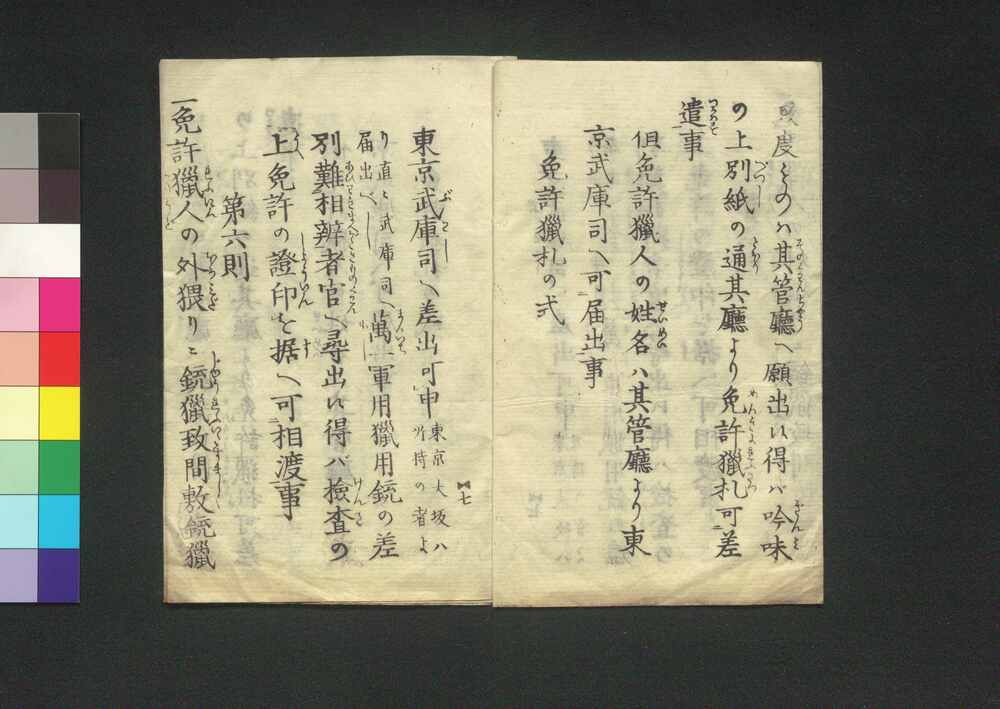 度ものハ其管廳へ願出候得ハ吟味
の上別紙の通其廳より免許獵札可差
遣事
但免許獵人の姓名ハ其管廳より東
京武庫司へ可届出事
免許獵札の式
七
東京武庫司へ差出可申東京大坂ハ所持の者よ
り直ニ武庫司へ届出へし萬一軍用獵用銃の差
別難相辨者官へ尋出候得ハ檢査の
上免許の證印を据へ可相渡事
第六則
一免許獵人の外猥りニ銃獵致間敷銃獵